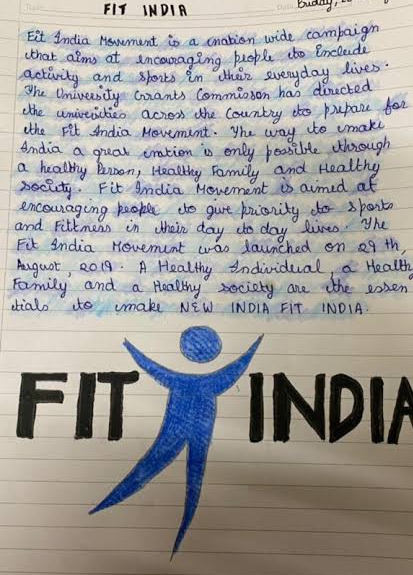 FIT INDIA
Friday,
Fit India Movement is a nation wide campaign
that aims at encouraging people to Include
activity and sports in their everyday lives.
The University Grants Commisson has directed
the univeities across the Country to prepare for
the Fit India Movement. The way to make
India a great nation is only possible through
a healthy Person, Healthy Family and Healthy
society. Fit India Movement is aimed at
encouraging people to give priority to sports
and Fittness in their day to day lives. The
Fit India Movement was launched on 29 th,
August, 2019. A Healthy Individual, a Healthy
Family and a Healthy society are the essen
tials to make NEW INDIA FIT INDIA.
FIT INDIA